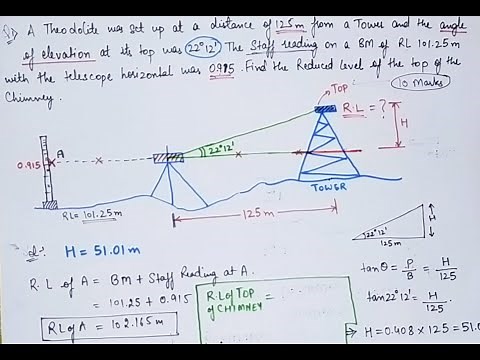 Q1) A Theodolite was set up at a distance of 125m from a Tower and the angle
of elevation at its top was 22°12' The Staff reading on a BM of RL 101.25m
with the telescope horizontal was 0.915. Find the Reduced level of the top of the
Chimney.
10 Marks
TOP
R.L = ?
H
22°12'
0.915
A
TOWER
RL = 101.25m
125m
H = 51.01m
R.L of A = BM + Staff Reading at A.
= 101.25 + 0.915
RL of A = 102.165m
R.L of TOP
of CHIMNEY =
22°12'
125m
H
tanθ = P/B = H/125
tan22°12' = H/125.
⇒ H = 0.408 × 125 = 51.0